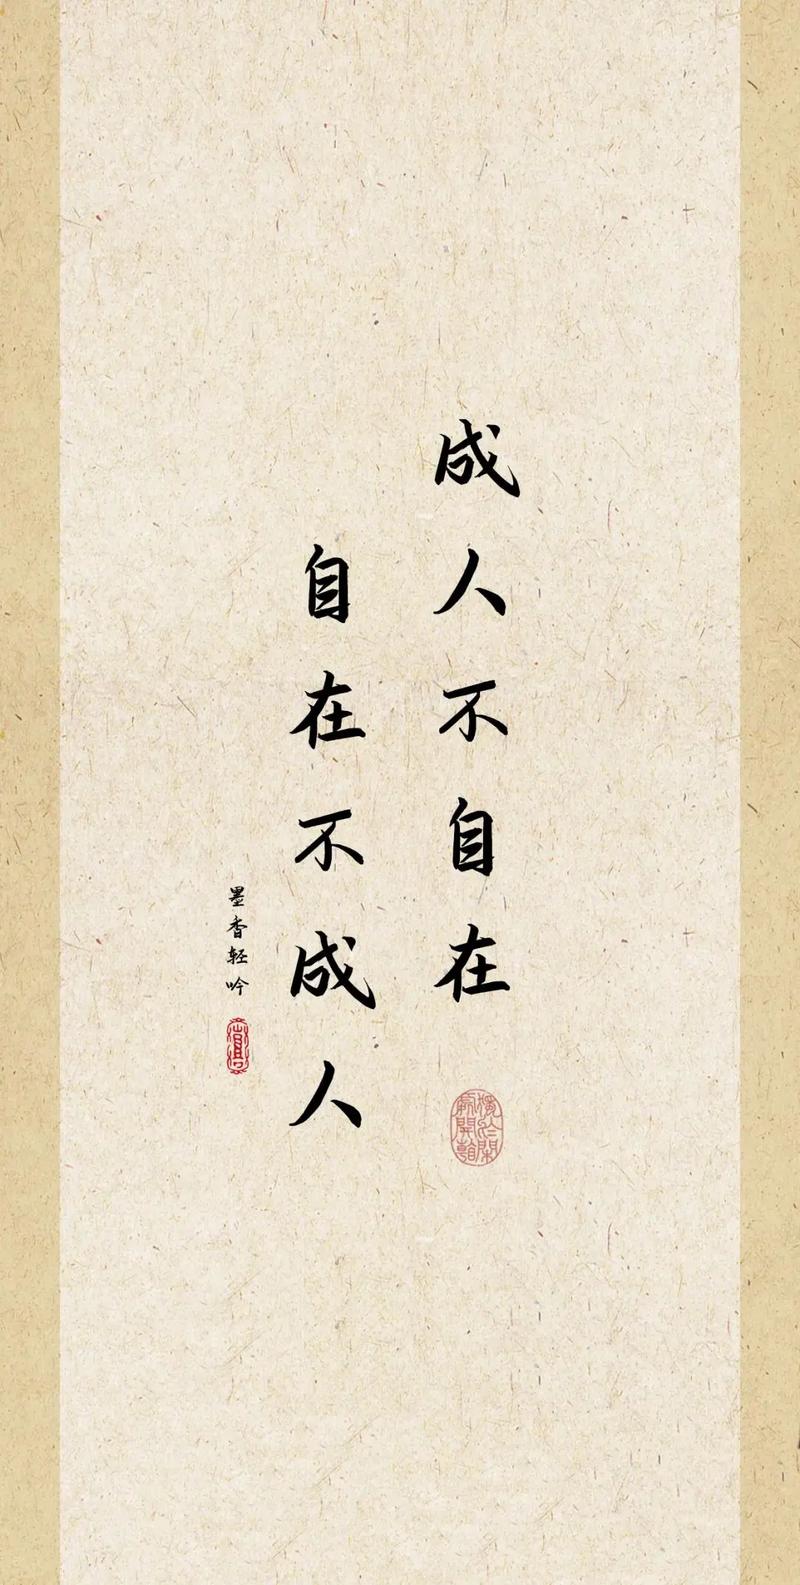 成人不自在
自在不成人
墨香轻吟